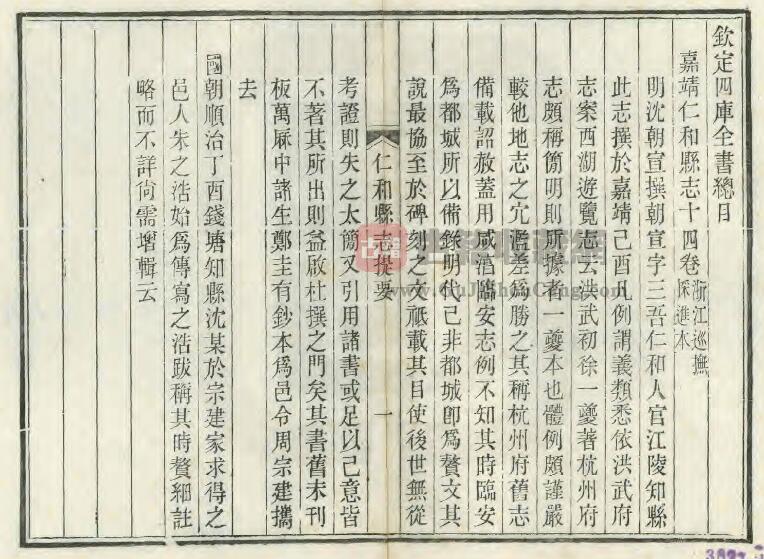 欽定四庫全書總目
嘉靖仁和縣志十四卷
浙江巡撫
採進本
明沈朝宣撰朝宣字三吾仁和人官江陵知縣
此志撰於嘉靖己酉凡例謂義類悉依洪武府
志案西湖遊覽志云洪武初徐一夔著杭州府
志頗稱簡明則所據者一夔本也體例頗謹嚴
較他地志之宂濫差爲勝之其稱杭州府舊志
備載詔赦葢用咸湻臨安志例不知其時臨安
爲都城所以備錄明代已非都城卽爲贅文其
說最協至於碑刻之文祗載其目使後世無從
仁和縣志提要 一
考證則失之太簡又引用諸書或足以己意皆
不著其所出則益啟杜撰之門矣其書舊未刊
板萬厤中諸生鄭圭有鈔本爲邑令周宗建攜
去
國朝順治丁酉錢塘知縣沈某於宗建家求得之
邑人朱之浩始爲傳寫之浩跋稱其時贅細註
略而不詳尙需增輯云
古籍
www.GuJiShuCang.com